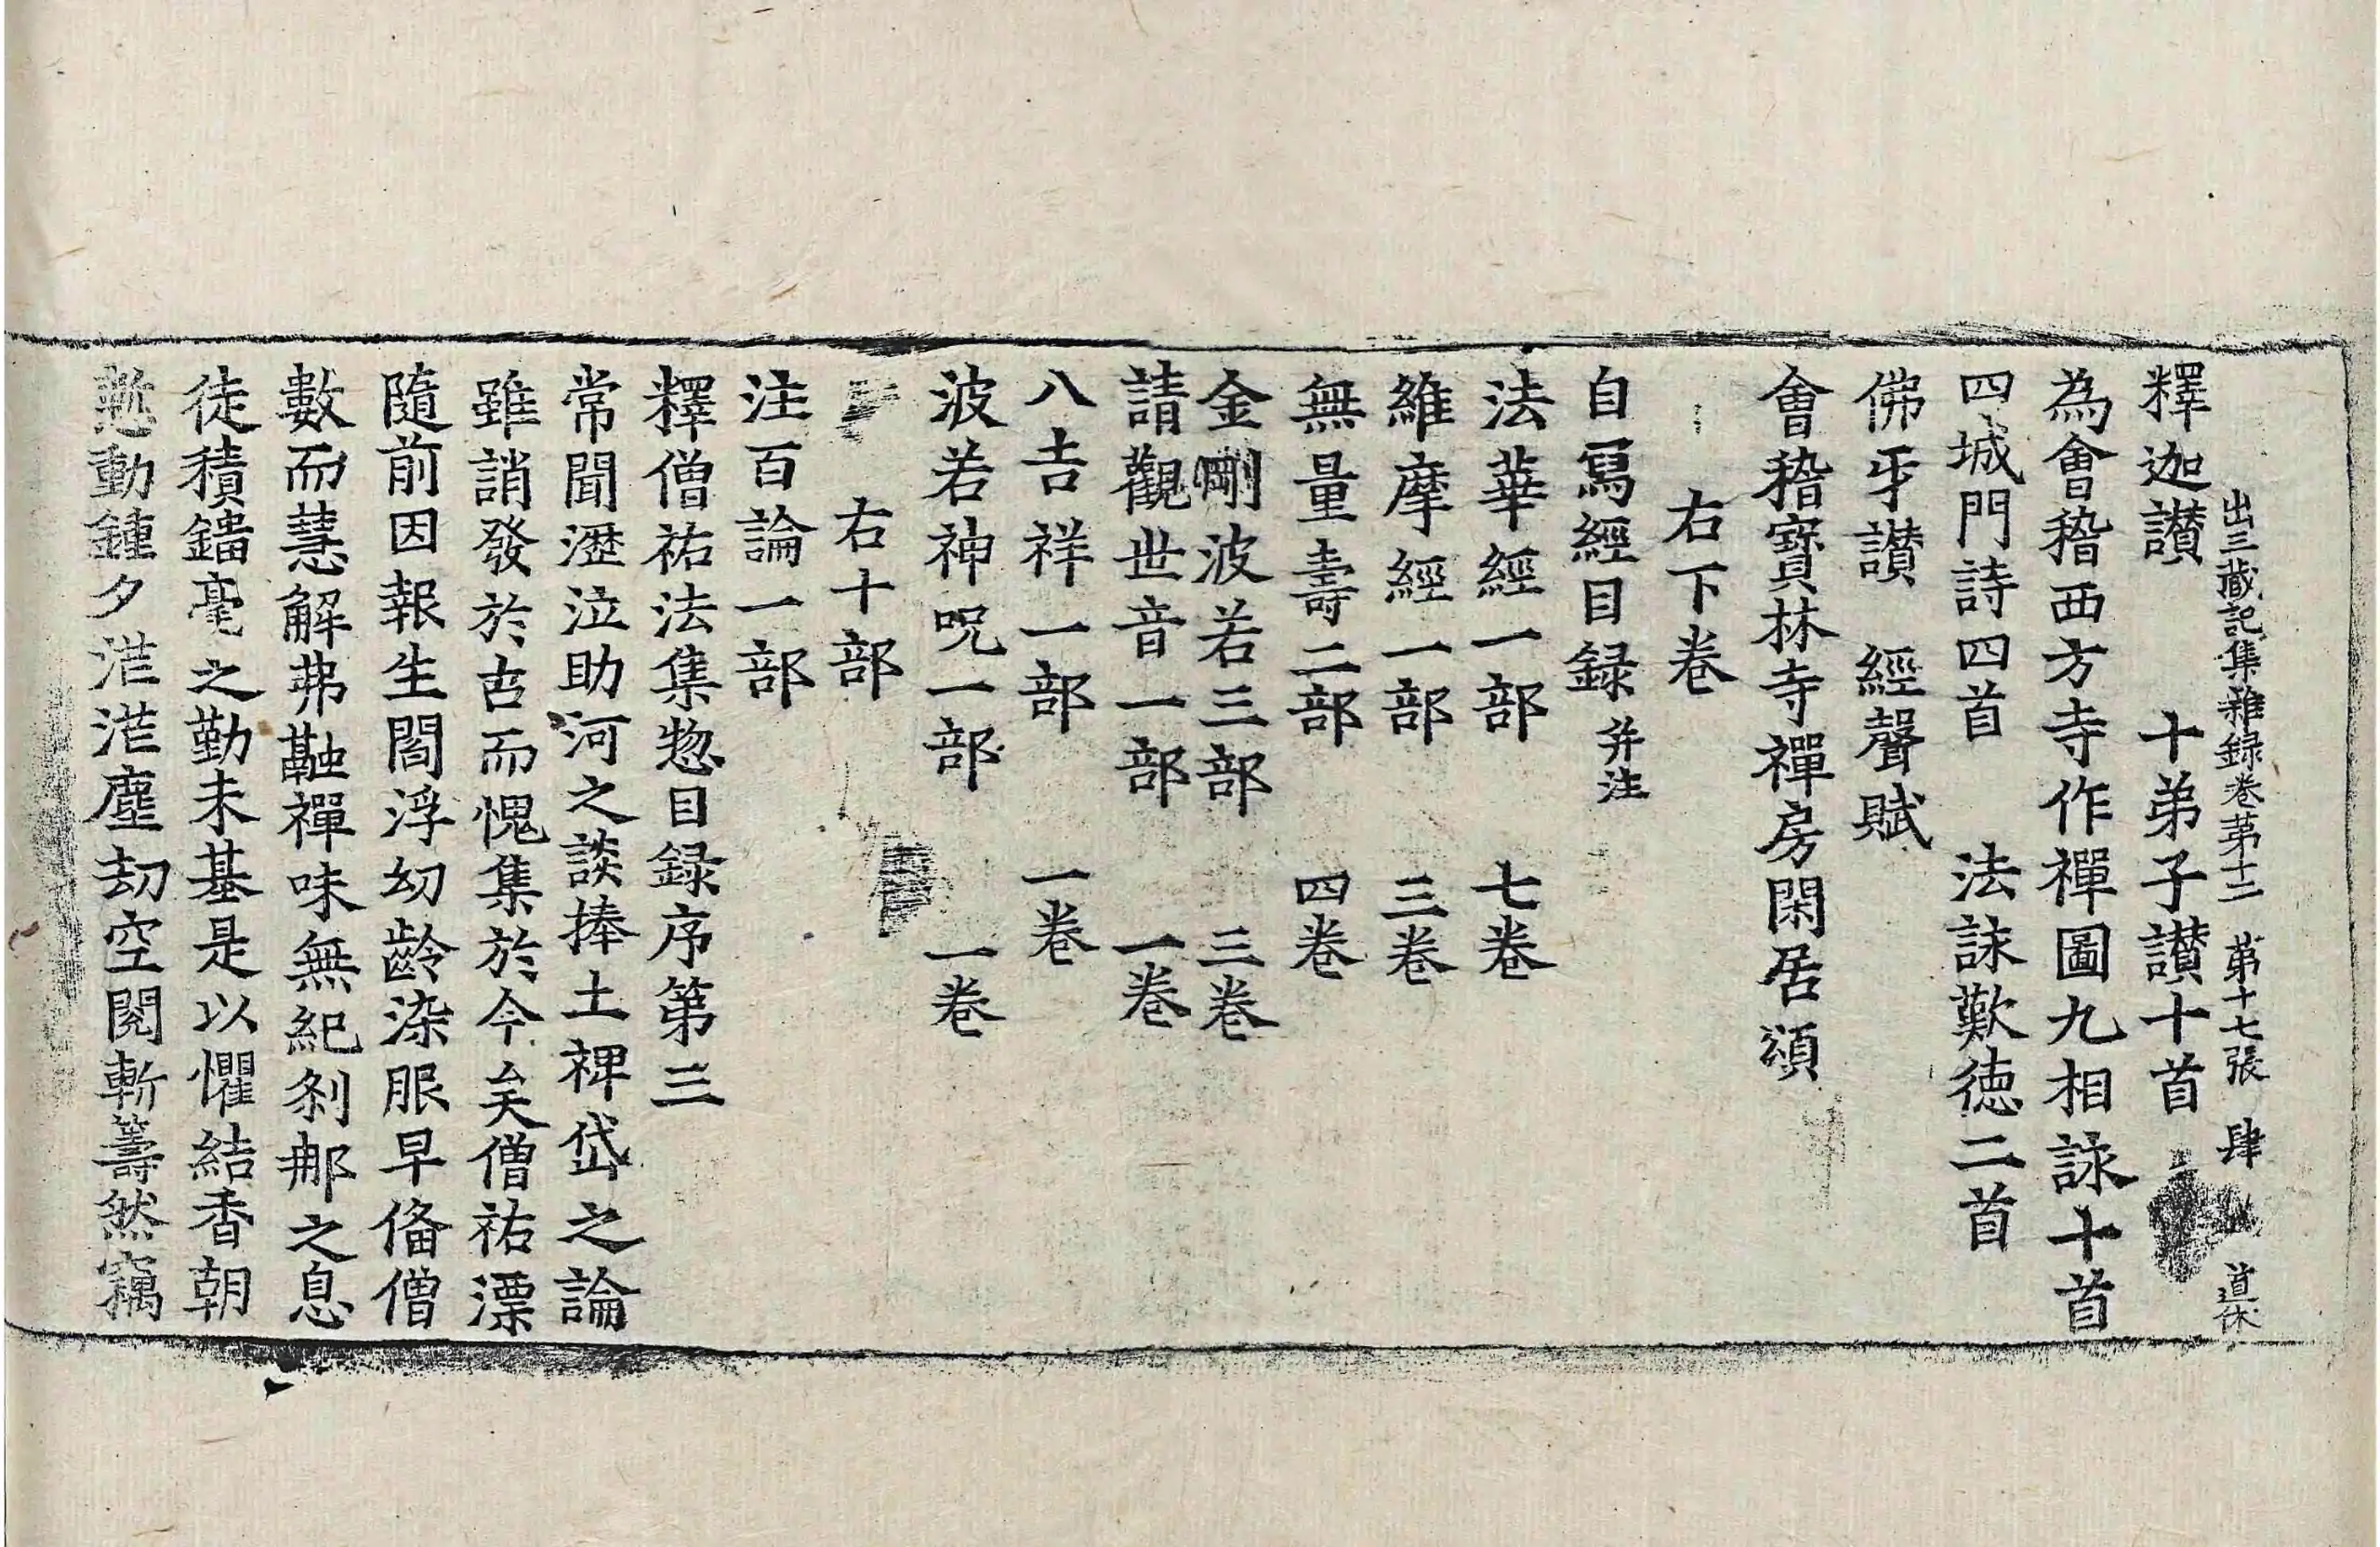 出三藏記集雜録卷苐十二　苐十七張　肆　道休
釋迦讃　十弟子讃十首
為會稽西方寺作禪圖九相詠十首
四城門詩四首　法詠歎德二首
佛牙讃　經聲賦
會稽寳林寺禪房閑居頌
右下卷
自寫經目録并注
法華經一部　七卷
維摩經一部　三卷
無量壽二部　四卷
金剛波若三部　三卷
請觀世音一部　一卷
八吉祥一部　一卷
波若神呪一部　一卷
右十部
注百論一部
釋僧祐法集惣目録序第三
常聞瀝泣助河之談捧土裨岱之論
雖誚發於古而愧集於今矣僧祐漂
隨前因報生閻浮幼齡染服早俻僧
數而慧解弗融禪味無紀刹那之息
徒積鐳毫之勤未基是以懼結香朝
慙動鍾夕茫茫塵劫空閱斬籌然竊